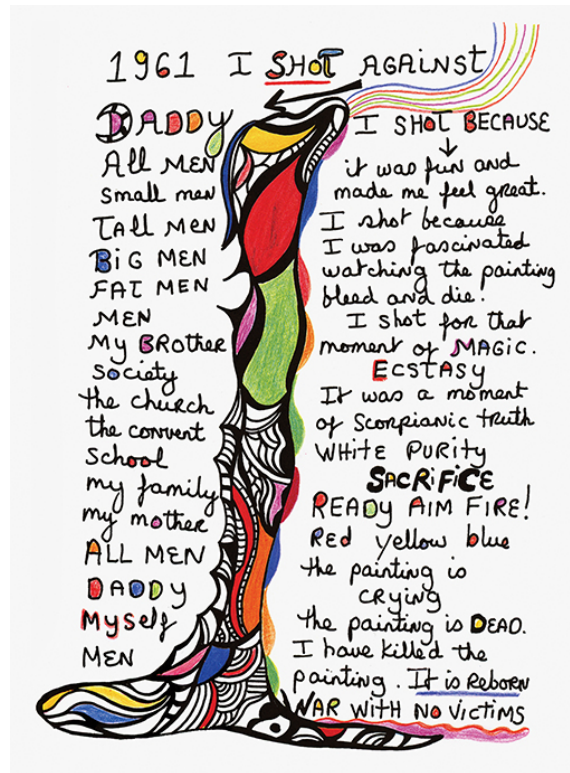 1961 I SHOT AGAINST
DADDY
All MEN
Small men
TAll MEN
BiG MEN
FAT MEN
MEN
My BRotheR
Society
the church
the convent
School
my family
my mother
ALL MEN
DADDY
Myself
MEN
I SHOT BECAUSE
it was fun and
made me feel great.
I shot because
I was fascinated
watching the painting
bleed and die.
I shot for that
moment of MAGIC.
ECSTASY
It was a moment
of Scorpianic truth
WHITE PURITY
SACRiFiCE
READY AIM FIRE!
Red yellow blue
the painting is
CRYING
the painting is DEAD.
I have killed the
painting. It is Reborn
WAR WITH NO VICTIMS